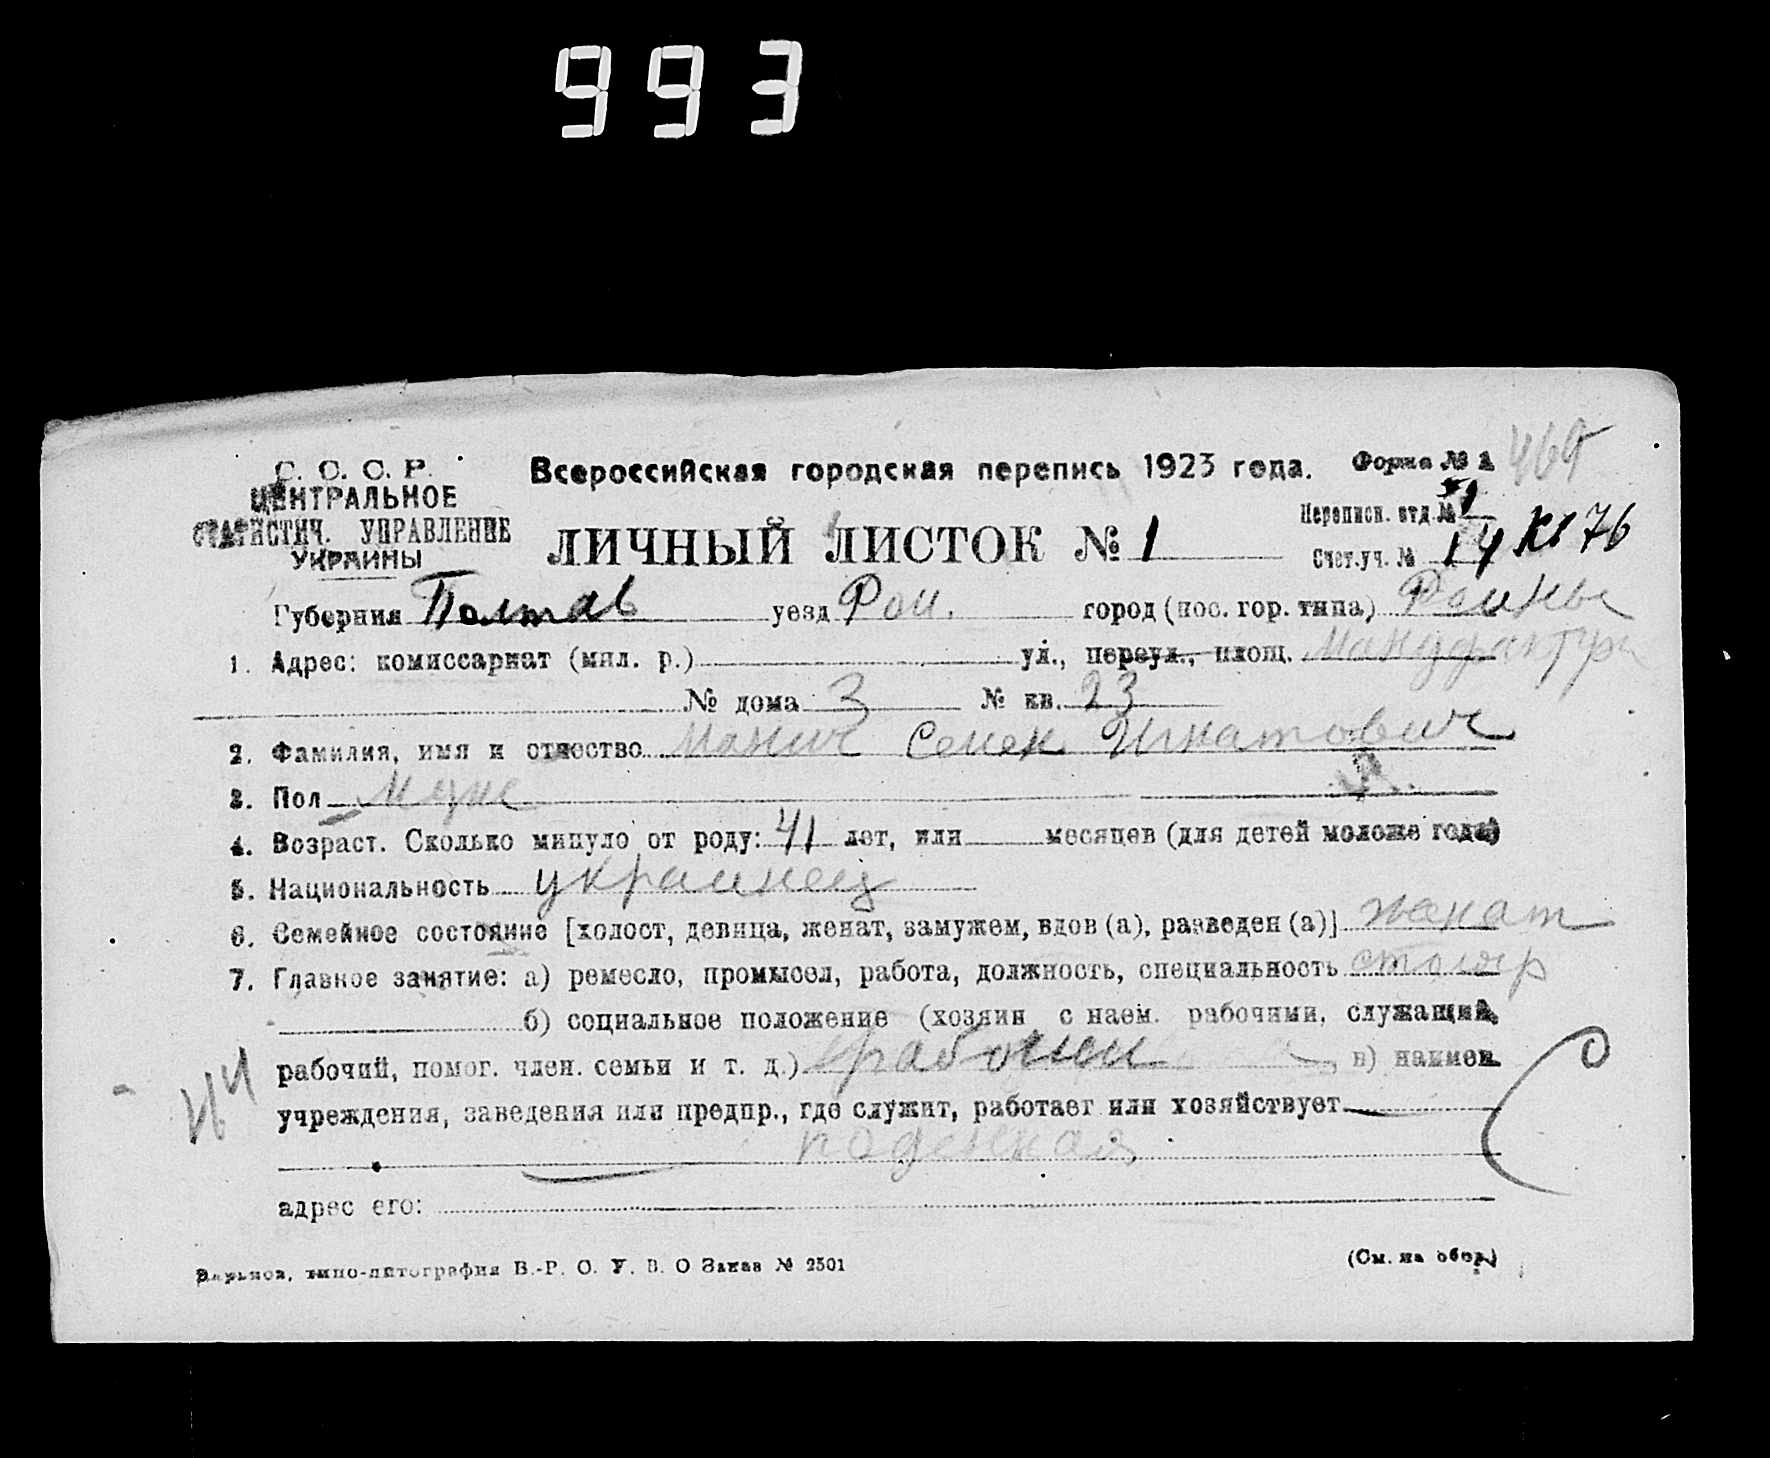 993
С. С. С. Р.
ЦЕНТРАЛЬНОЕ
СТАТИСТИЧ. УПРАВЛЕНИЕ
УКРАИНЫ
Всероссийская городская перепись 1923 года.
Форма № 1
ЛИЧНЫЙ ЛИСТОК № 1
Переписн. отд. №
Счет.уч. № 14 КВ 76
Губерния Полтав уезд Ром. город (пос. гор. типа) Ромны
1. Адрес: комиссариат (мил. р.) ул., переул., площ. Мануфактурн
№ дома 3 № кв. 23
2. Фамилия, имя и отчество Семен Игнатович
3. Пол Муже
4. Возраст. Сколько минуло от роду: 41 лет, или месяцев (для детей моложе года)
5. Национальность украинец
6. Семейное состояние [холост, девица, женат, замужем, вдов (а), разведен (а)] жанат
7. Главное занятие: а) ремесло, промысел, работа, должность, специальность столяр
б) социальное положение (хозяин с наем. рабочими, служащий,
рабочий, помог. член. семьи и т. д.) рабочий, в) наимен.
учреждения, заведения или предпр., где служит, работает или хозяйствует
поденная
адрес его:
Харьков, типо-литография В.-Р. О. У. В. О Заказ № 2501
(См. на обор.)